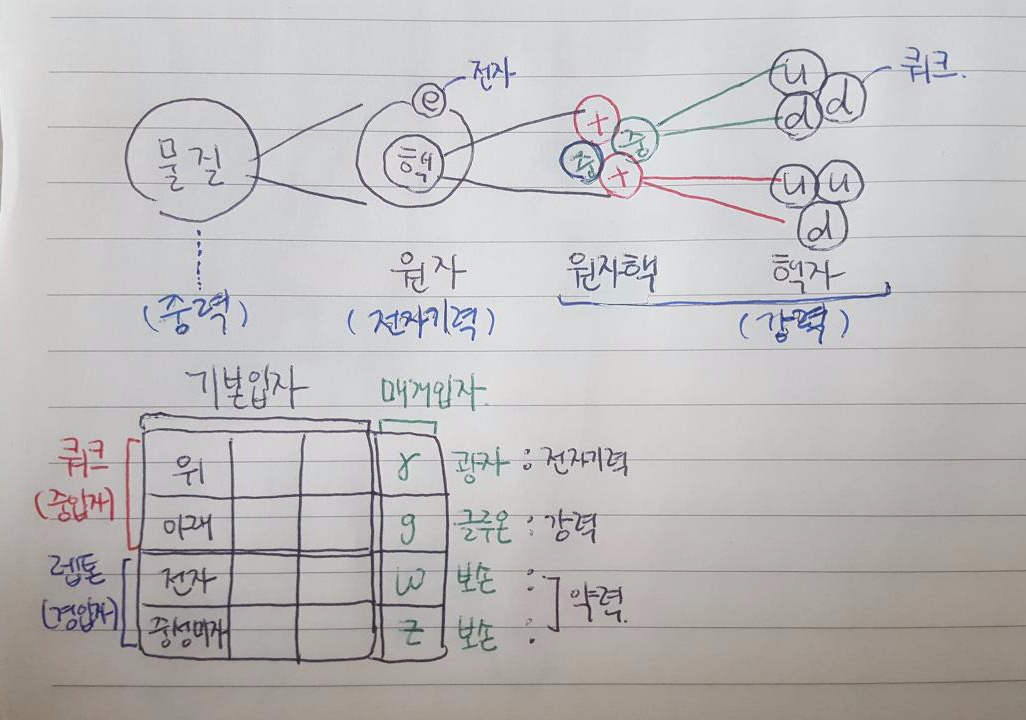 물질
e
전자
핵
+ 중
중 +
u
d d
쿼크.
u u
d
원자 원자핵 핵자
(중력) (전자기력) (강력)
기본입자 매개입자
쿼크 위 γ 광자 : 전자기력
(중입자) 아래 g 글루온 : 강력
렙톤 전자 W 보손 : 약력.
(경입자) 중성미자 Z 보손 :